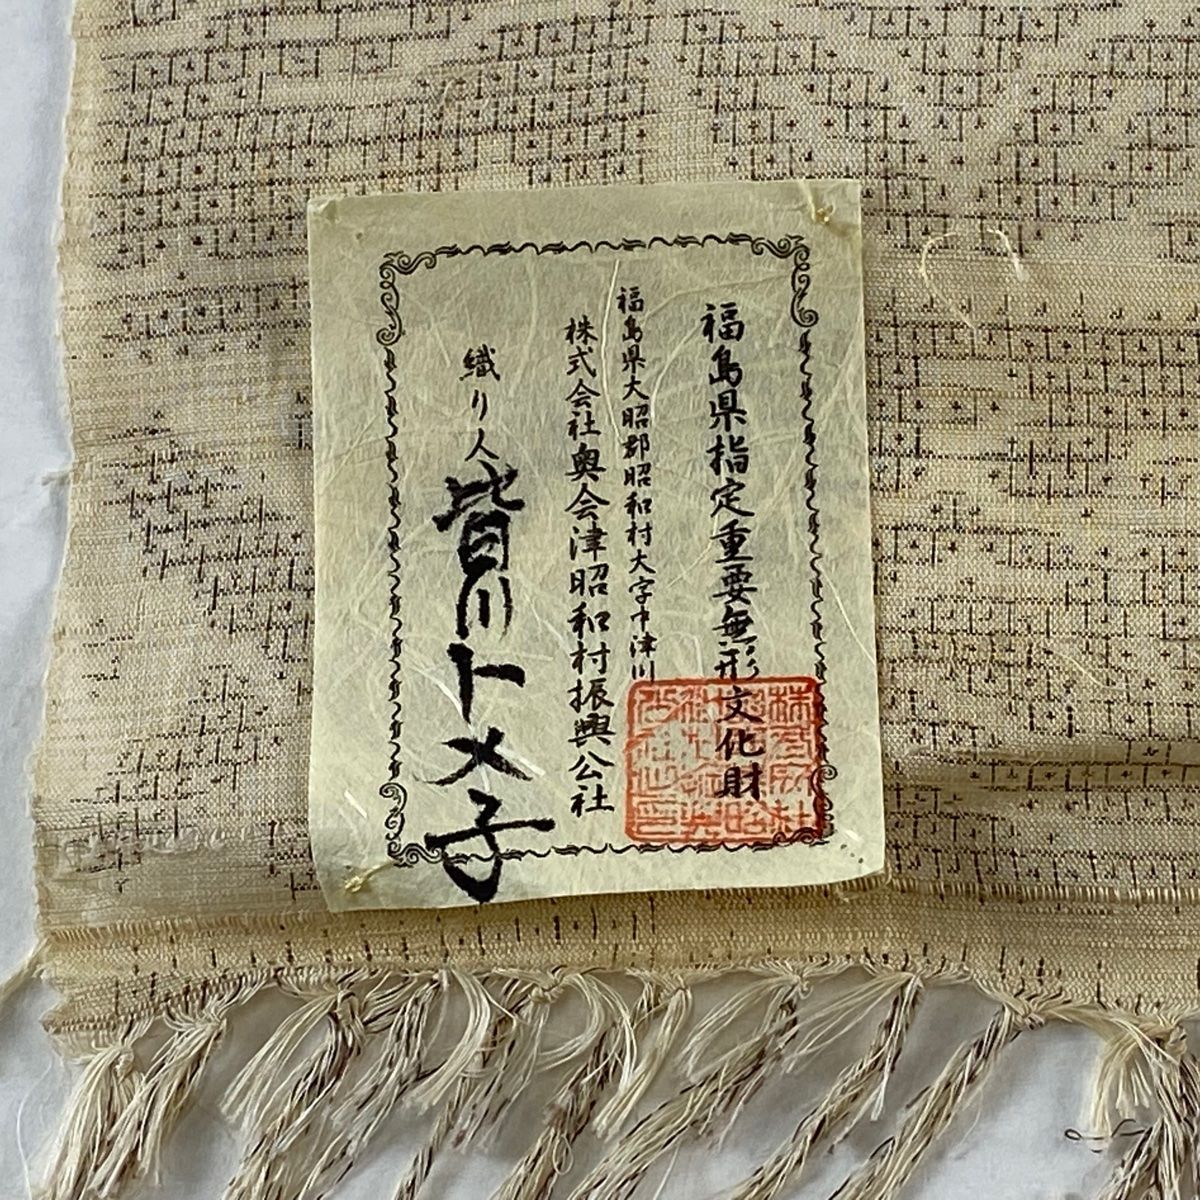 福島県指定重要無形文化財
福島県大昭郡昭和村大字中津川
株式会社奥会津昭和村振興公社
織り人
皆川トメ子